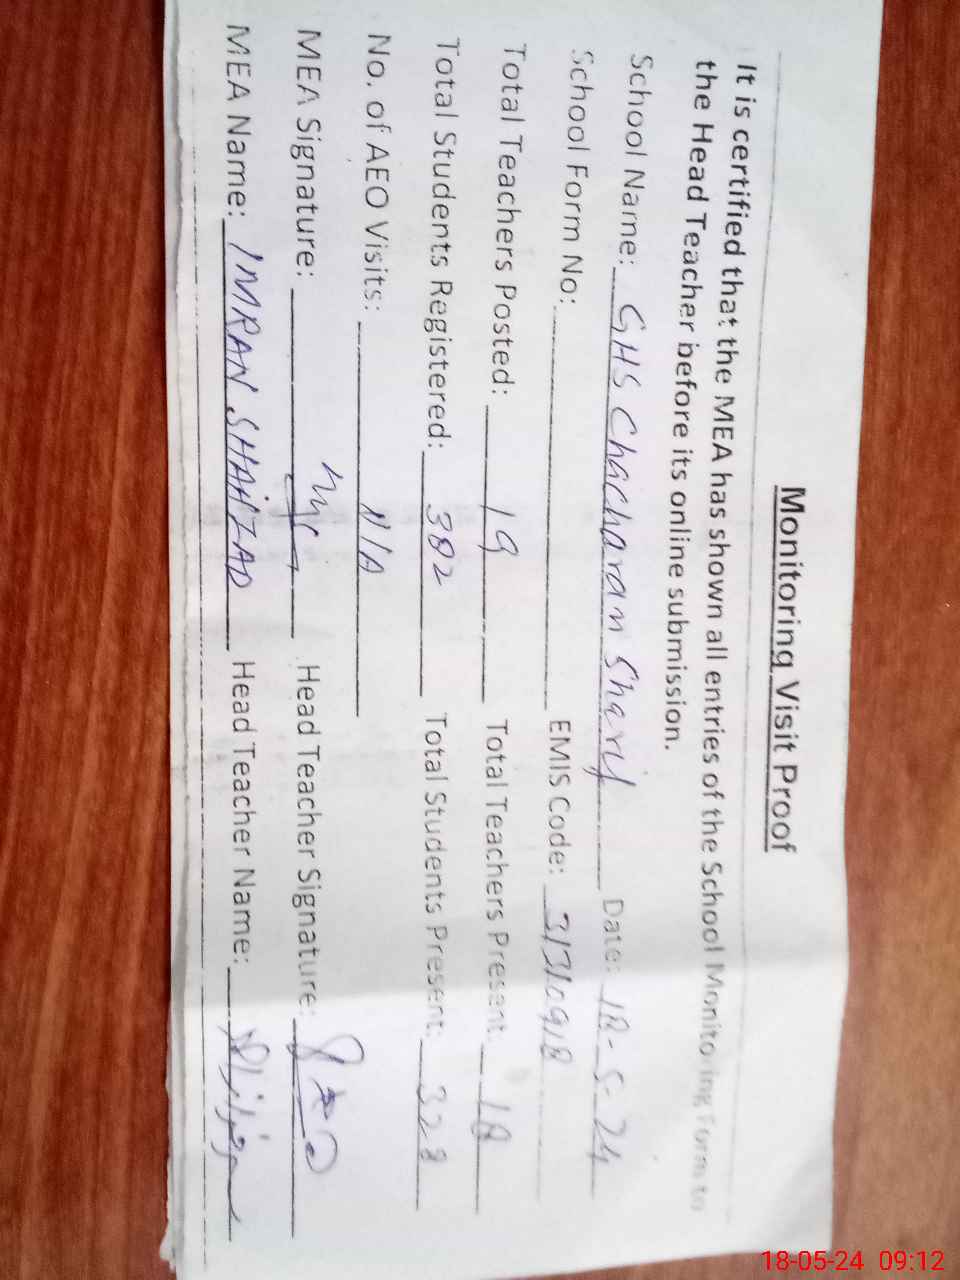 Monitoring Visit Proof
It is certified that the MEA has shown all entries of the School Monitoring Form to
the Head Teacher before its online submission.
School Name: GHS Chacharan Sharif Date: 18-5-24
School Form No: EMIS Code: 31310918
Total Teachers Posted: 19 Total Teachers Present: 18
Total Students Registered: 382 Total Students Present: 328
No. of AEO Visits: N/A
MEA Signature: Head Teacher Signature:
MEA Name: IMRAN SHAHZAD Head Teacher Name:
18-05-24 09:12